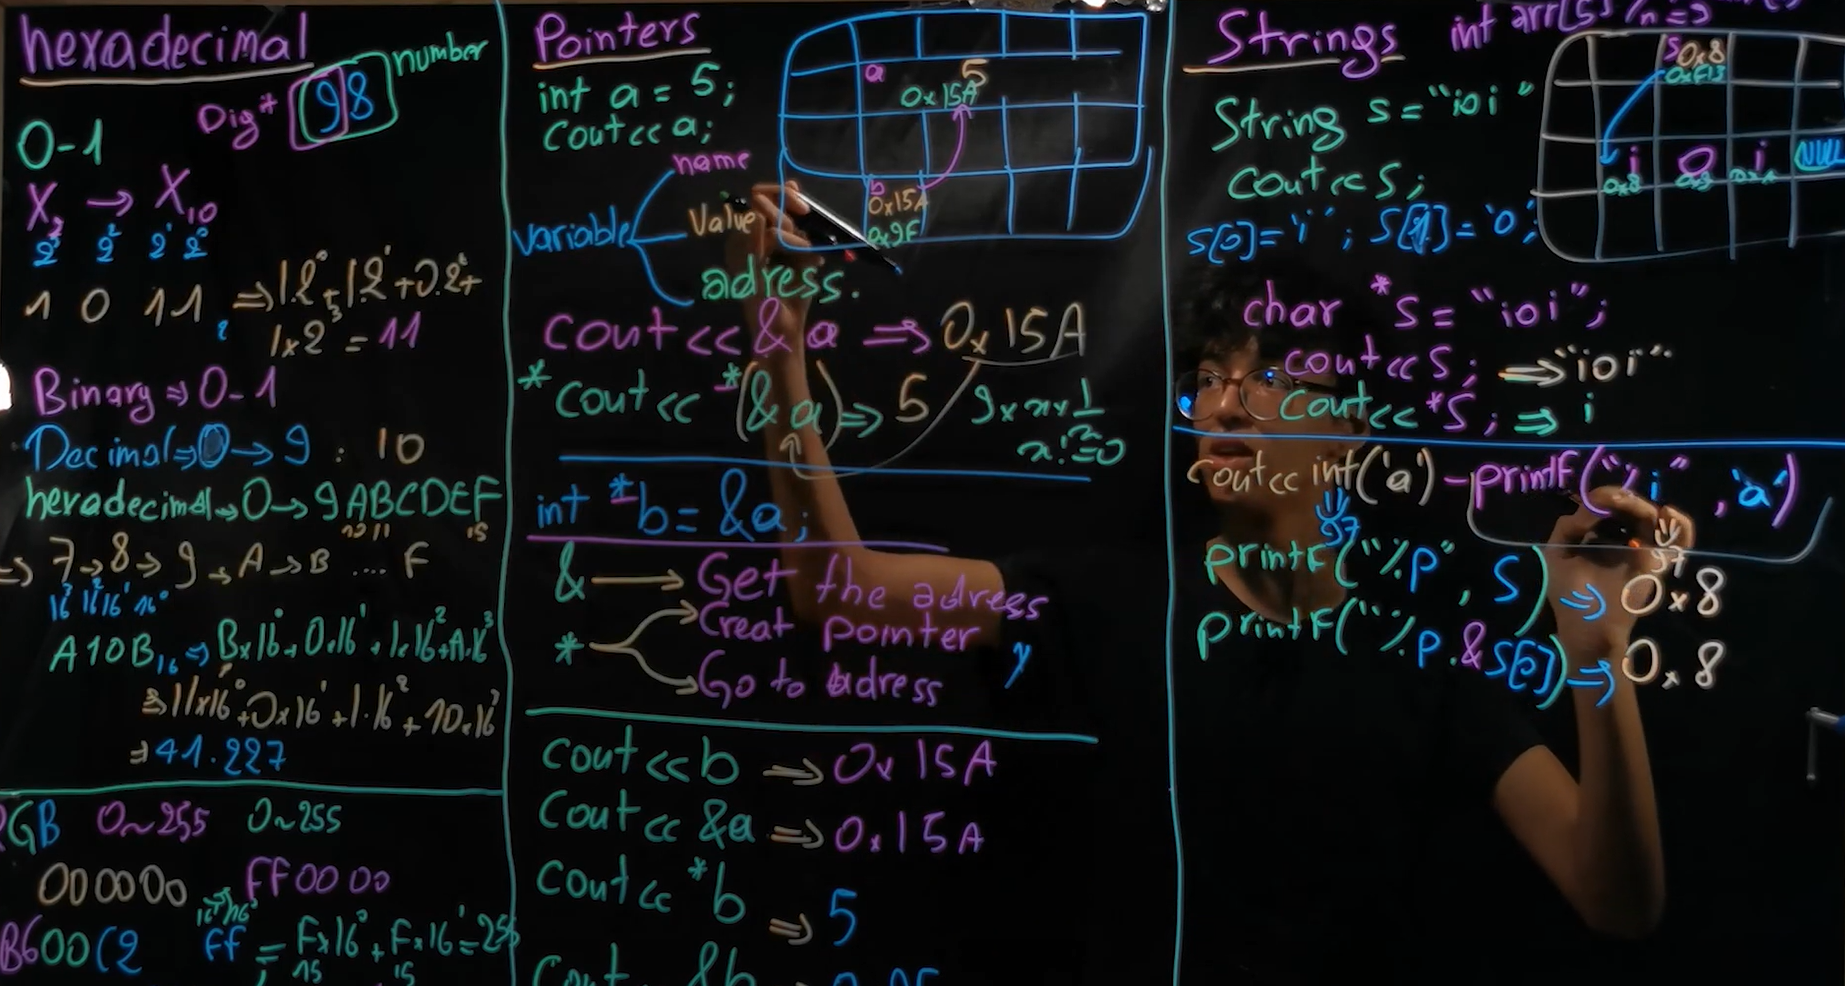 hexadecimal
Digit 98 number
0-1
X₂ → X₁₀
2³ 2² 2¹ 2⁰
1 0 1 1 ₂ ⇒ 1.2⁰+1.2¹+0.2²+
1x2³ = 11
Binary ⇒ 0-1
Decimal ⇒ 0 → 9 : 10
hexadecimal → 0 → 9ABCDEF
10 11 15
⇒ 7 → 8 → 9 → A → B .... F
16³ 16² 16¹ 16⁰
A10B₁₆ ⇒ Bx16⁰+0.16¹+1.16²+A.16³
⇒ 11x16⁰+0x16¹+1.16²+10.16³
⇒ 41.227
RGB 0~255 0~255
000000 FF0000
16¹ 16⁰
B600C2 FF = Fx16⁰+Fx16¹=255
15 15
Pointers
int a = 5;
cout<<a;
a 5
0x15A
b
0x15A
0x9F
variable
name
Value
adress.
cout<<&a ⇒ 0x15A
*cout<<*(&a) ⇒ 5
9xnx1/x
x!=0
int *b=&a;
& → Get the adress
* → Creat pointer
→ Go to adress
y
cout<<b ⇒ 0x15A
Cout<<&a ⇒ 0x15A
Cout<<*b ⇒ 5
Cout &b
Strings
int arr[5]
String s="ioi"
Cout<<S;
S[0]='i'; S[1]='o';
S 0x8
0xF13
i o i NULL
0x8 0x9 0xA
char *s="ioi";
cout<<S; ⇒ "ioi"
Cout<<*S; ⇒ i
Cout<<int('a')-printF("%i",'a')
97 97
printF("%p",S) ⇒ 0x8
printF("%p.&S[0]) ⇒ 0x8